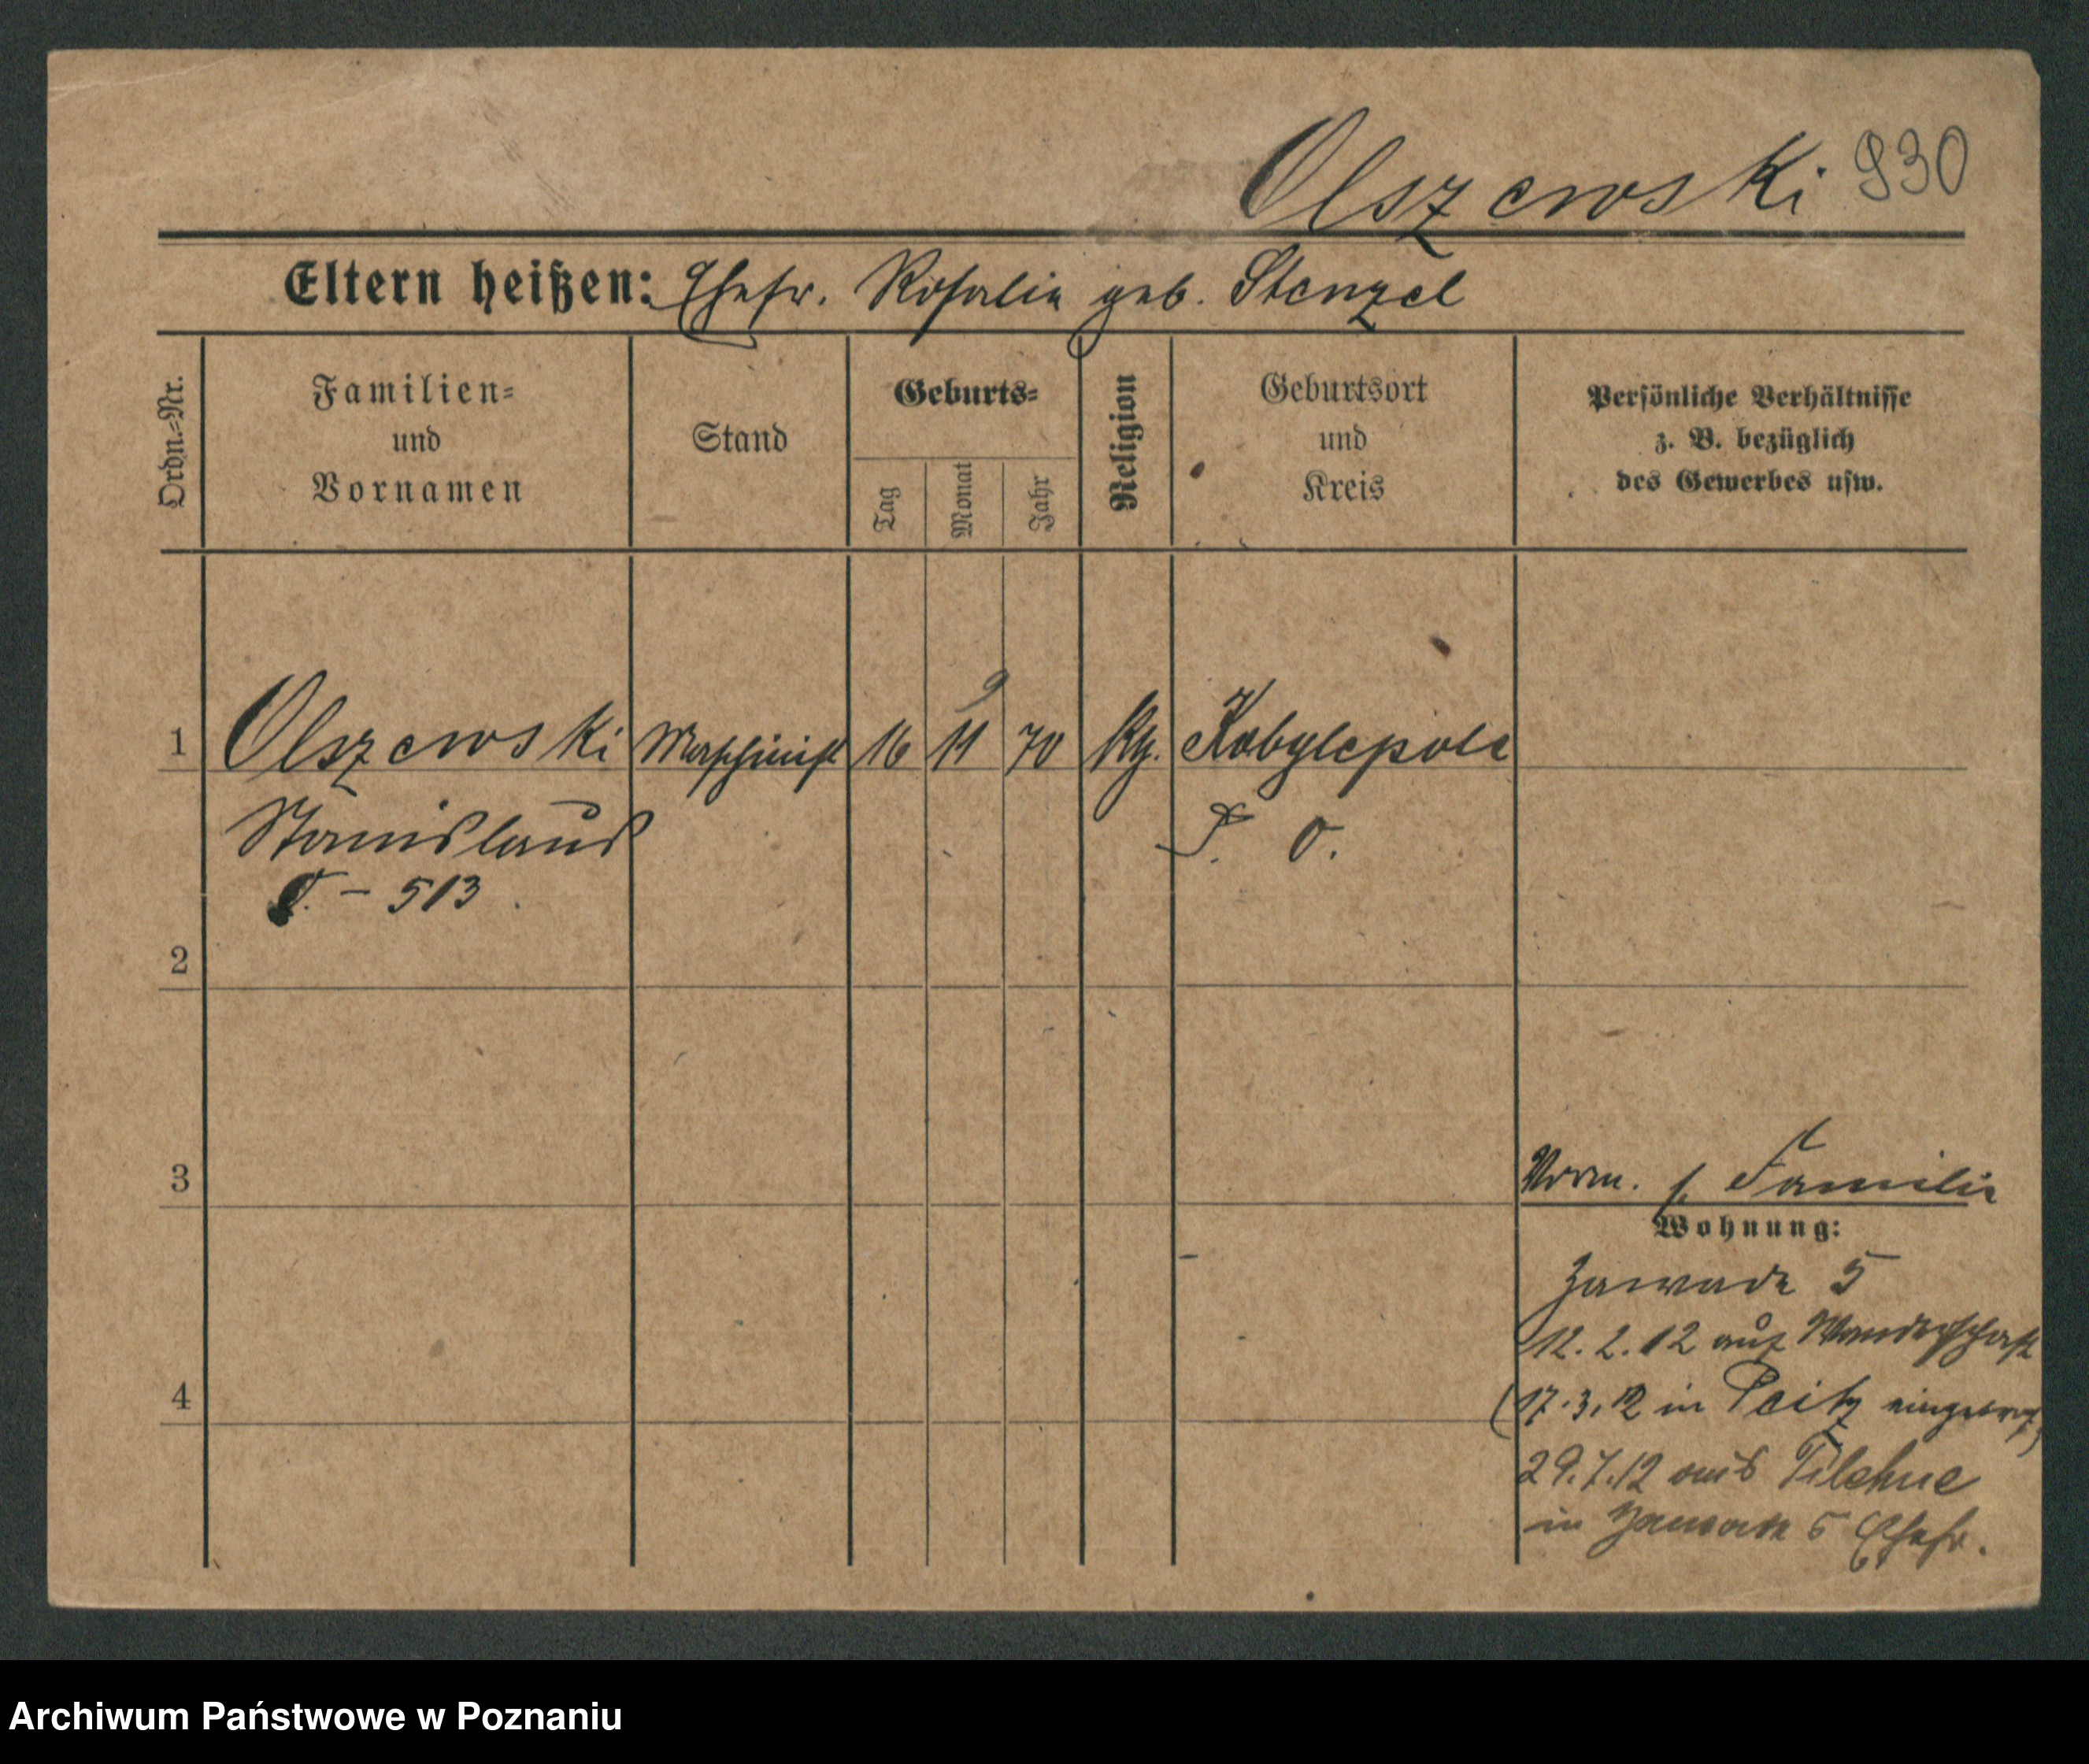 Olszewski 930
Eltern heißen: Ehefr. Rosalie geb. Stenzel
Ordn.-Nr.
Familien-
und
Vornamen
Stand
Geburts-
Tag
Monat
Jahr
Religion
Geburtsort
und
Kreis
Persönliche Verhältnisse
z. B. bezüglich
des Gewerbes usw.
9
1 Olszewski Maschinist 16 11 70 Kobylepole
Stanislaus P. O.
- 513
2
3
Verm. s. Familie
Wohnung:
Zawade 5
12. 2. 12 auf Wanderschaft
4
(17. 3. 12 in Peitz
29. 7. 12 aus Filehne
in Zawade 5 Ehefr.
Archiwum Państwowe w Poznaniu